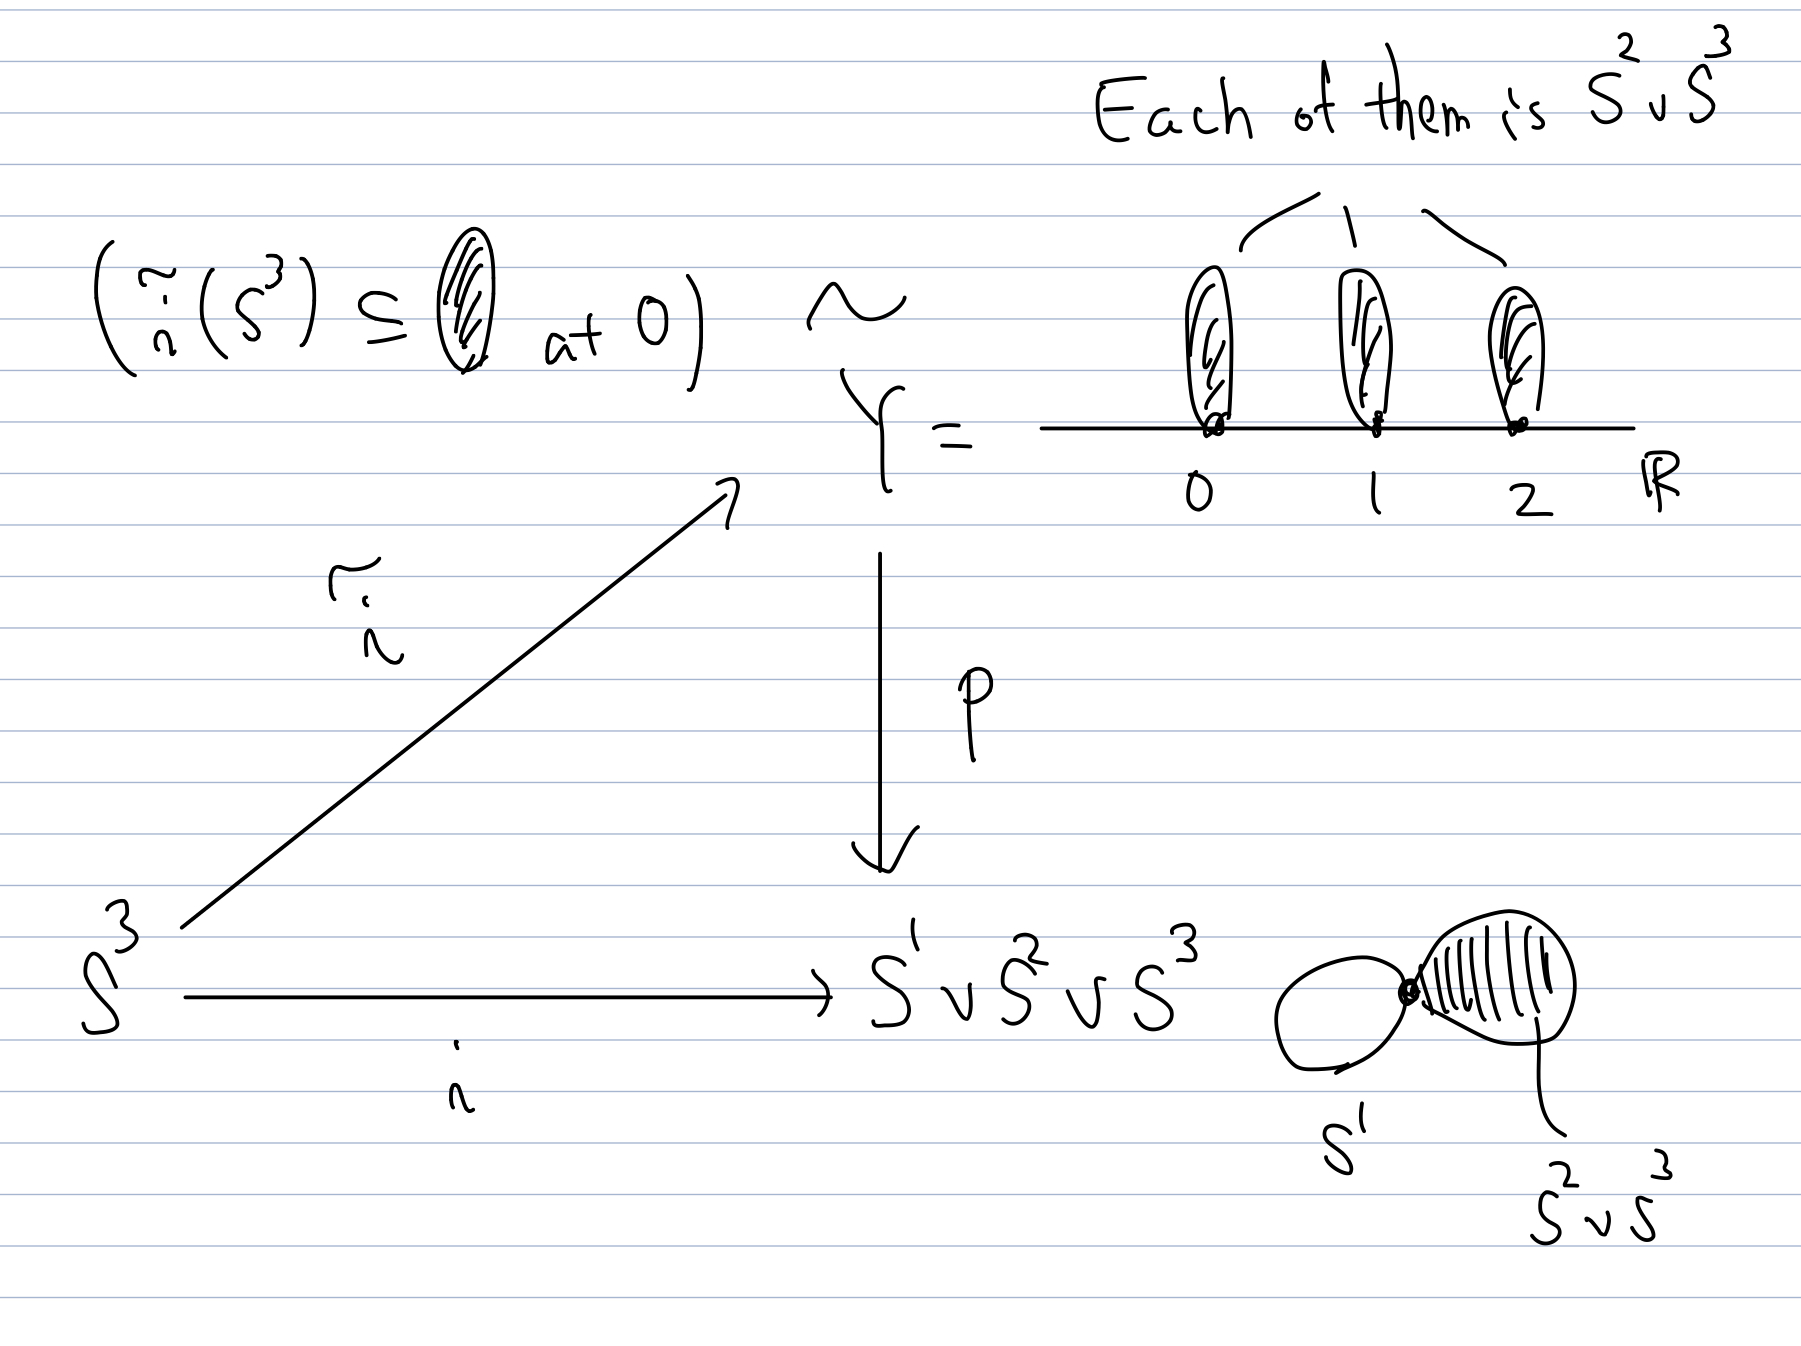 Each of them is S² ∨ S³
(ĩ(S³) ⊆ at 0) Ỹ =
0 1 2 ℝ
ĩ
p
S³ S¹ ∨ S² ∨ S³
i
S¹
S² ∨ S³